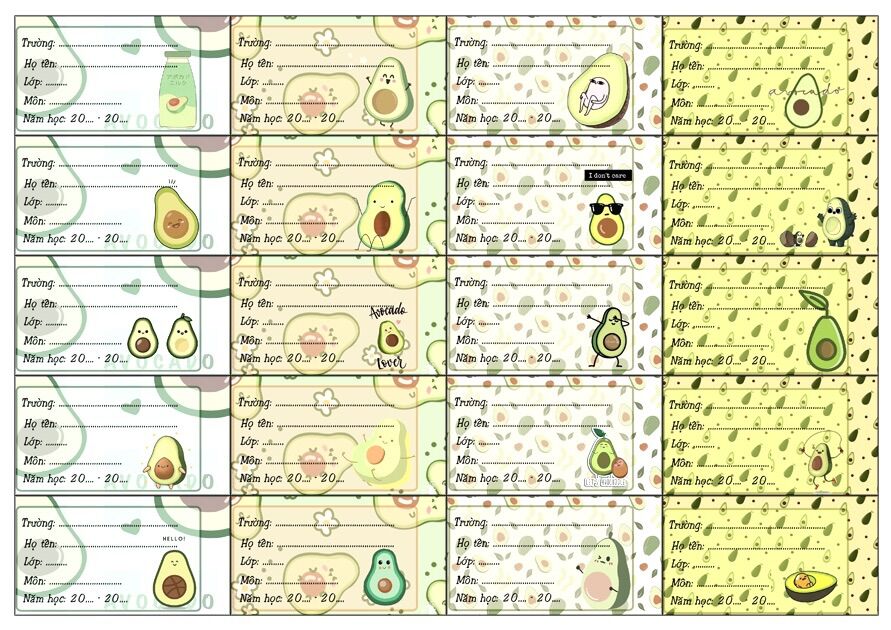 Trường: ..............................
Họ tên: ..............................
アボカド
ミルク
Lớp: .......
Môn: ....................
Năm học: 20.... - 20....
AVOCADO
Trường: ..............................
Họ tên: ..............................
Lớp: .......
Môn: ....................
Năm học: 20.... - 20....
Trường: ..............................
Họ tên: ..............................
Lớp: .......
Môn: ....................
Năm học: 20.... - 20....
Trường: ..............................
Họ tên: ..............................
Lớp: .......
avocado
Môn: ....................
Năm học: 20.... - 20....
Trường: ..............................
Họ tên: ..............................
Lớp: .......
Môn: ....................
Năm học: 20.... - 20....
AVOCADO
Trường: ..............................
Họ tên: ..............................
Lớp: .......
Môn: ....................
Năm học: 20.... - 20....
Trường: ..............................
I don't care
Họ tên: ..............................
Lớp: .......
Môn: ....................
Năm học: 20.... - 20....
Trường: ..............................
Họ tên: ..............................
Lớp: .......
Môn: ....................
Năm học: 20.... - 20....
Trường: ..............................
Họ tên: ..............................
Lớp: .......
Môn: ....................
Năm học: 20.... - 20....
AVOCADO
Trường: ..............................
Họ tên: ..............................
Avocado
Lớp: .......
Môn: ....................
Năm học: 20.... - 20....
Lover
Trường: ..............................
Họ tên: ..............................
Lớp: .......
Môn: ....................
Năm học: 20.... - 20....
Trường: ..............................
Họ tên: ..............................
Lớp: .......
Môn: ....................
Năm học: 20.... - 20....
Trường: ..............................
Họ tên: ..............................
Lớp: .......
Môn: ....................
Năm học: 20.... - 20....
AVOCADO
Trường: ..............................
Họ tên: ..............................
Lớp: .......
Môn: ....................
Năm học: 20.... - 20....
Trường: ..............................
Họ tên: ..............................
Lớp: .......
Môn: ....................
Năm học: 20.... - 20....
Trường: ..............................
Họ tên: ..............................
Lớp: .......
Môn: ....................
Năm học: 20.... - 20....
Trường: ..............................
HELLO!
Họ tên: ..............................
Lớp: .......
Môn: ....................
Năm học: 20.... - 20....
AVOCADO
Trường: ..............................
Họ tên: ..............................
Lớp: .......
Môn: ....................
Năm học: 20.... - 20....
Trường: ..............................
Họ tên: ..............................
Lớp: .......
Môn: ....................
Năm học: 20.... - 20....
Trường: ..............................
Họ tên: ..............................
Lớp: .......
Môn: ....................
Năm học: 20.... - 20....